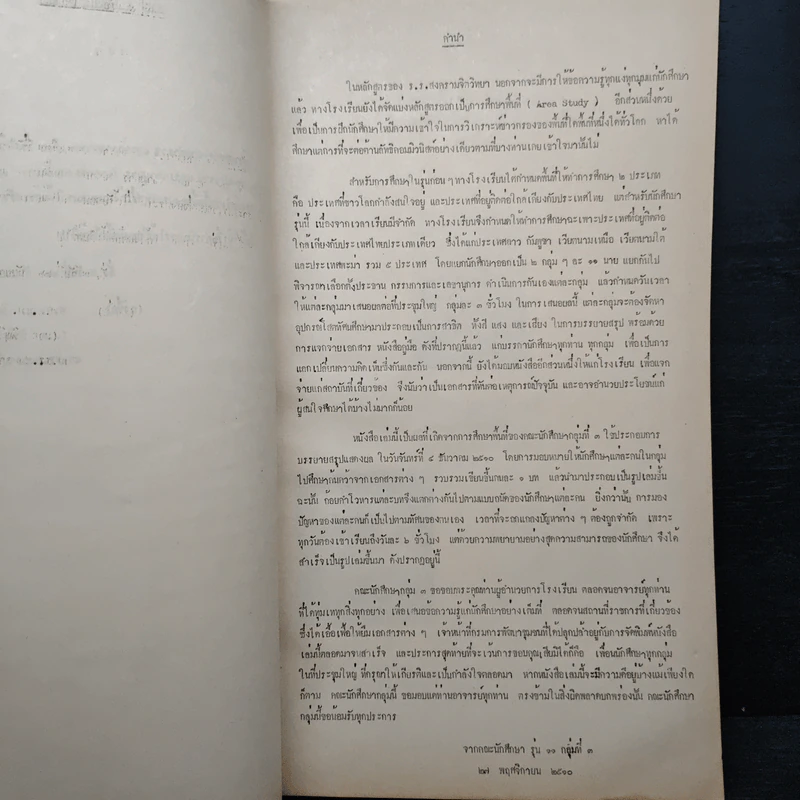 คำนำ
ในหลักสูตรของ ร.ร.สงครามจิตวิทยา นอกจากจะมีการให้ข้อความรู้ทุกแง่ทุกมุมแก่นักศึกษา
แล้ว ทางโรงเรียนยังได้จัดแบ่งหลักสูตรออกเป็นการศึกษาพื้นที่ ( Area Study ) อีกส่วนหนึ่งด้วย
เพื่อเป็นการฝึกนักศึกษาให้มีความเข้าใจในการวิเคราะห์ข่าวกรองของพื้นที่ใดพื้นที่หนึ่งได้ทั่วโลก หาได้
ศึกษาแต่การที่จะต่อต้านลัทธิคอมมิวนิสต์อย่างเดียวตามที่บางท่านเคยเข้าใจมานั้นไม่
สำหรับการศึกษาในรุ่นก่อน ๆ ทางโรงเรียนได้กำหนดพื้นที่ให้ทำการศึกษา ๒ ประเภท
คือ ประเทศที่ชาวโลกกำลังสนใจอยู่ และประเทศที่อยู่ติดต่อใกล้เคียงกับประเทศไทย แต่สำหรับนักศึกษา
รุ่นนี้ เนื่องจากเวลาเรียนมีจำกัด ทางโรงเรียนจึงกำหนดให้ทำการศึกษาฉะเพาะประเทศที่อยู่ติดต่อ
ใกล้เคียงกับประเทศไทยประเภทเดียว ซึ่งได้แก่ประเทศลาว กัมพูชา เวียดนามเหนือ เวียดนามใต้
และประเทศพะม่า รวม ๕ ประเทศ โดยแยกนักศึกษาออกเป็น ๒ กลุ่ม ๆ ละ ๑๑ นาย แยกกันไป
พิจารณาเลือกตั้งประธาน กรรมการและเลขานุการ ดำเนินการกันเองแต่ละกลุ่ม แล้วกำหนดวันเวลา
ให้แต่ละกลุ่มมาเสนอผลต่อที่ประชุมใหญ่ กลุ่มละ ๓ ชั่วโมง ในการเสนอผลนี้ แต่ละกลุ่มจะต้องจัดหา
อุปกรณ์โสตทัศนศึกษามาประกอบเป็นการสาธิต ทั้งสี แสง และเสียง ในการบรรยายสรุป พร้อมด้วย
การแจกจ่ายเอกสาร หนังสือคู่มือ ดังที่ปรากฏนี้แล้ว แก่บรรดานักศึกษาทุกท่าน ทุกกลุ่ม เพื่อเป็นการ
แลกเปลี่ยนความคิดเห็นซึ่งกันและกัน นอกจากนี้ ยังได้มอบหนังสืออีกส่วนหนึ่งให้แก่โรงเรียน เพื่อแจก
จ่ายแก่สถาบันที่เกี่ยวข้อง จึงนับว่าเป็นเอกสารที่ทันต่อเหตุการณ์ปัจจุบัน และอาจอำนวยประโยชน์แก่
ผู้สนใจศึกษาได้บ้างไม่มากก็น้อย
หนังสือเล่มนี้เป็นผลที่เกิดจากการศึกษาพื้นที่ของคณะนักศึกษากลุ่มที่ ๓ ใช้ประกอบการ
บรรยายสรุปแสดงผล ในวันจันทร์ที่ ๔ ธันวาคม ๒๕๑๐ โดยการมอบหมายให้นักศึกษาแต่ละคนในกลุ่ม
ไปศึกษาค้นคว้าจากเอกสารต่าง ๆ รวบรวมเขียนขึ้นคนละ ๑ บท แล้วนำมาประกอบเป็นรูปเล่มขึ้น
ฉะนั้น ถ้อยคำโวหารแต่ละบทจึงแตกต่างกันไปตามแบบถนัดของนักศึกษาแต่ละคน ยิ่งกว่านั้น การมอง
ปัญหาของแต่ละคนก็เป็นไปตามทัศนะของตนเอง เวลาที่จะถกแถลงปัญหาต่าง ๆ ต้องถูกจำกัด เพราะ
ทุกวันต้องเข้าเรียนถึงวันละ ๖ ชั่วโมง แต่ด้วยความพยายามอย่างสุดความสามารถของนักศึกษา จึงได้
สำเร็จเป็นรูปเล่มขึ้นมา ดังปรากฏอยู่นี้
คณะนักศึกษากลุ่ม ๓ ขอขอบพระคุณท่านผู้อำนวยการโรงเรียน ตลอดจนอาจารย์ทุกท่าน
ที่ได้ทุ่มเททุกสิ่งทุกอย่าง เพื่อเสนอข้อความรู้แก่นักศึกษาอย่างเต็มที่ ตลอดจนสถานที่ราชการที่เกี่ยวข้อง
ซึ่งได้เอื้อเฟื้อให้ยืมเอกสารต่าง ๆ เจ้าหน้าที่กรมการพัฒนาชุมชนที่ได้ปลุกปล้ำอยู่กับการจัดพิมพ์หนังสือ
เล่มนี้ตลอดมาจนสำเร็จ และประการสุดท้ายที่จะเว้นการขอบคุณเสียมิได้ก็คือ เพื่อนนักศึกษาทุกกลุ่ม
ในที่ประชุมใหญ่ ที่กรุณาให้เกียรติและเป็นกำลังใจตลอดมา หากหนังสือเล่มนี้จะมีความดีอยู่บ้างแม้เพียงใด
ก็ตาม คณะนักศึกษากลุ่มนี้ ขอมอบแด่ท่านอาจารย์ทุกท่าน ตรงข้ามในสิ่งผิดพลาดบกพร่องนั้น คณะนักศึกษา
กลุ่มนี้ขอน้อมรับทุกประการ
จากคณะนักศึกษา รุ่น ๑๑ กลุ่มที่ ๓
๒๗ พฤศจิกายน ๒๕๑๐